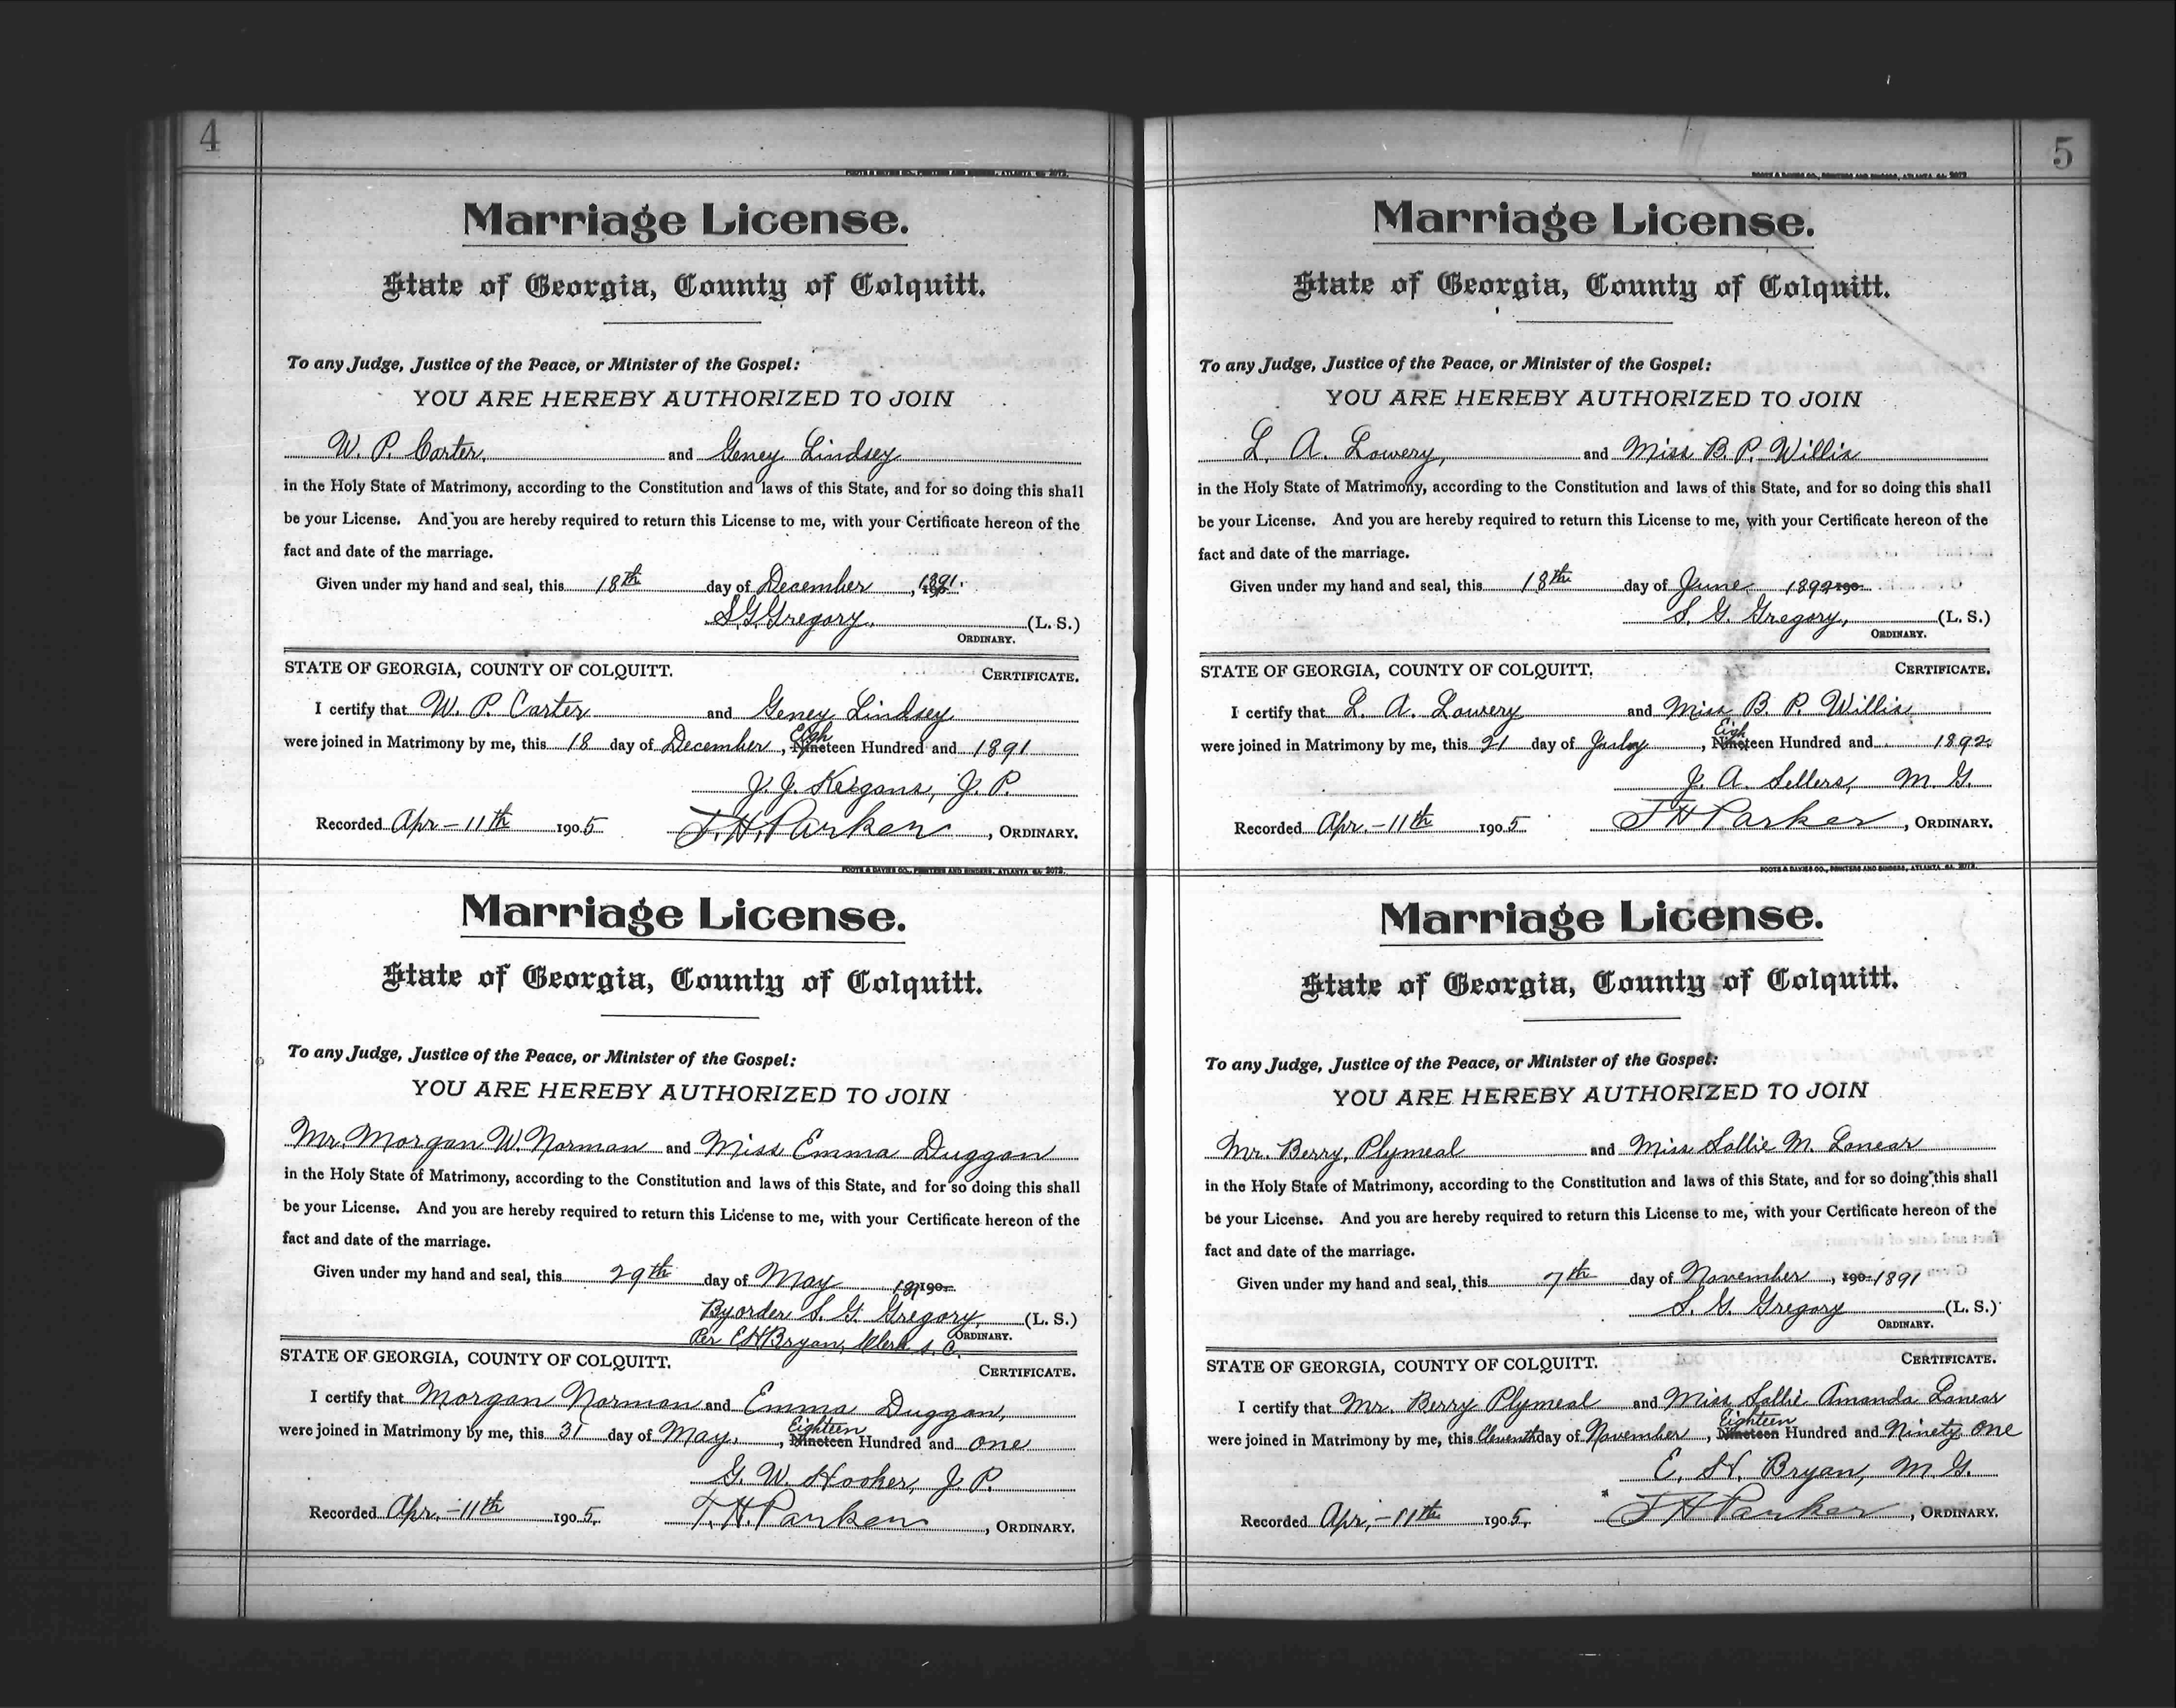 4
FOOTE & DAVIES CO., PRINTERS AND BINDERS, ATLANTA, GA. 2072.
Marriage License.
State of Georgia, County of Colquitt.
To any Judge, Justice of the Peace, or Minister of the Gospel:
YOU ARE HEREBY AUTHORIZED TO JOIN
W. P. Carter, and Geney Lindsey
in the Holy State of Matrimony, according to the Constitution and laws of this State, and for so doing this shall
be your License. And you are hereby required to return this License to me, with your Certificate hereon of the
fact and date of the marriage.
Given under my hand and seal, this 18th day of December, 1891.
S. G. Gregory. (L. S.)
ORDINARY.
STATE OF GEORGIA, COUNTY OF COLQUITT. CERTIFICATE.
I certify that W. P. Carter and Geney Lindsey
Eigh
were joined in Matrimony by me, this 18 day of December, Nineteen Hundred and 1891
J. J. Keigans, J. P.
Recorded Apr - 11th 1905 T. H. Parker, ORDINARY.
FOOTE & DAVIES CO., PRINTERS AND BINDERS, ATLANTA, GA. 2072.
Marriage License.
State of Georgia, County of Colquitt.
To any Judge, Justice of the Peace, or Minister of the Gospel:
YOU ARE HEREBY AUTHORIZED TO JOIN
Mr. Morgan W. Norman and Miss Emma Duggan
in the Holy State of Matrimony, according to the Constitution and laws of this State, and for so doing this shall
be your License. And you are hereby required to return this License to me, with your Certificate hereon of the
fact and date of the marriage.
Given under my hand and seal, this 29th day of May 190
By order S. G. Gregory, (L. S.)
Per E H Bryan, Clerk S. C. ORDINARY.
STATE OF GEORGIA, COUNTY OF COLQUITT. CERTIFICATE.
I certify that Morgan Norman and Emma Duggan,
Eighteen
were joined in Matrimony by me, this 31 day of May, Nineteen Hundred and one
G. W. Hooker, J. P.
Recorded Apr. - 11th 1905. T. H. Parker, ORDINARY.
5
FOOTE & DAVIES CO., PRINTERS AND BINDERS, ATLANTA, GA. 2072.
Marriage License.
State of Georgia, County of Colquitt.
To any Judge, Justice of the Peace, or Minister of the Gospel:
YOU ARE HEREBY AUTHORIZED TO JOIN
L. A. Lowery, and Miss B. P. Willis
in the Holy State of Matrimony, according to the Constitution and laws of this State, and for so doing this shall
be your License. And you are hereby required to return this License to me, with your Certificate hereon of the
fact and date of the marriage.
Given under my hand and seal, this 18th day of June 1892 190
S. G. Gregory, (L. S.)
ORDINARY.
STATE OF GEORGIA, COUNTY OF COLQUITT. CERTIFICATE.
I certify that L. A. Lowery and Miss B. P. Willis
Eigh
were joined in Matrimony by me, this 21 day of July, Nineteen Hundred and 1892
J. A. Sellers, M. G.
Recorded Apr. - 11th 1905 T H Parker, ORDINARY.
FOOTE & DAVIES CO., PRINTERS AND BINDERS, ATLANTA, GA. 2072.
Marriage License.
State of Georgia, County of Colquitt.
To any Judge, Justice of the Peace, or Minister of the Gospel:
YOU ARE HEREBY AUTHORIZED TO JOIN
Mr. Berry Plymeal and Miss Sallie M. Lanear
in the Holy State of Matrimony, according to the Constitution and laws of this State, and for so doing this shall
be your License. And you are hereby required to return this License to me, with your Certificate hereon of the
fact and date of the marriage.
Given under my hand and seal, this 7th day of November, 190 1891
S. G. Gregory (L. S.)
ORDINARY.
STATE OF GEORGIA, COUNTY OF COLQUITT. CERTIFICATE.
I certify that Mr. Berry Plymeal and Miss Sallie Amanda Lanear
Eighteen
were joined in Matrimony by me, this Eleventh day of November, Nineteen Hundred and Ninety One
E. H. Bryan, M. G.
Recorded Apr, - 11th 1905, T H Parker, ORDINARY.